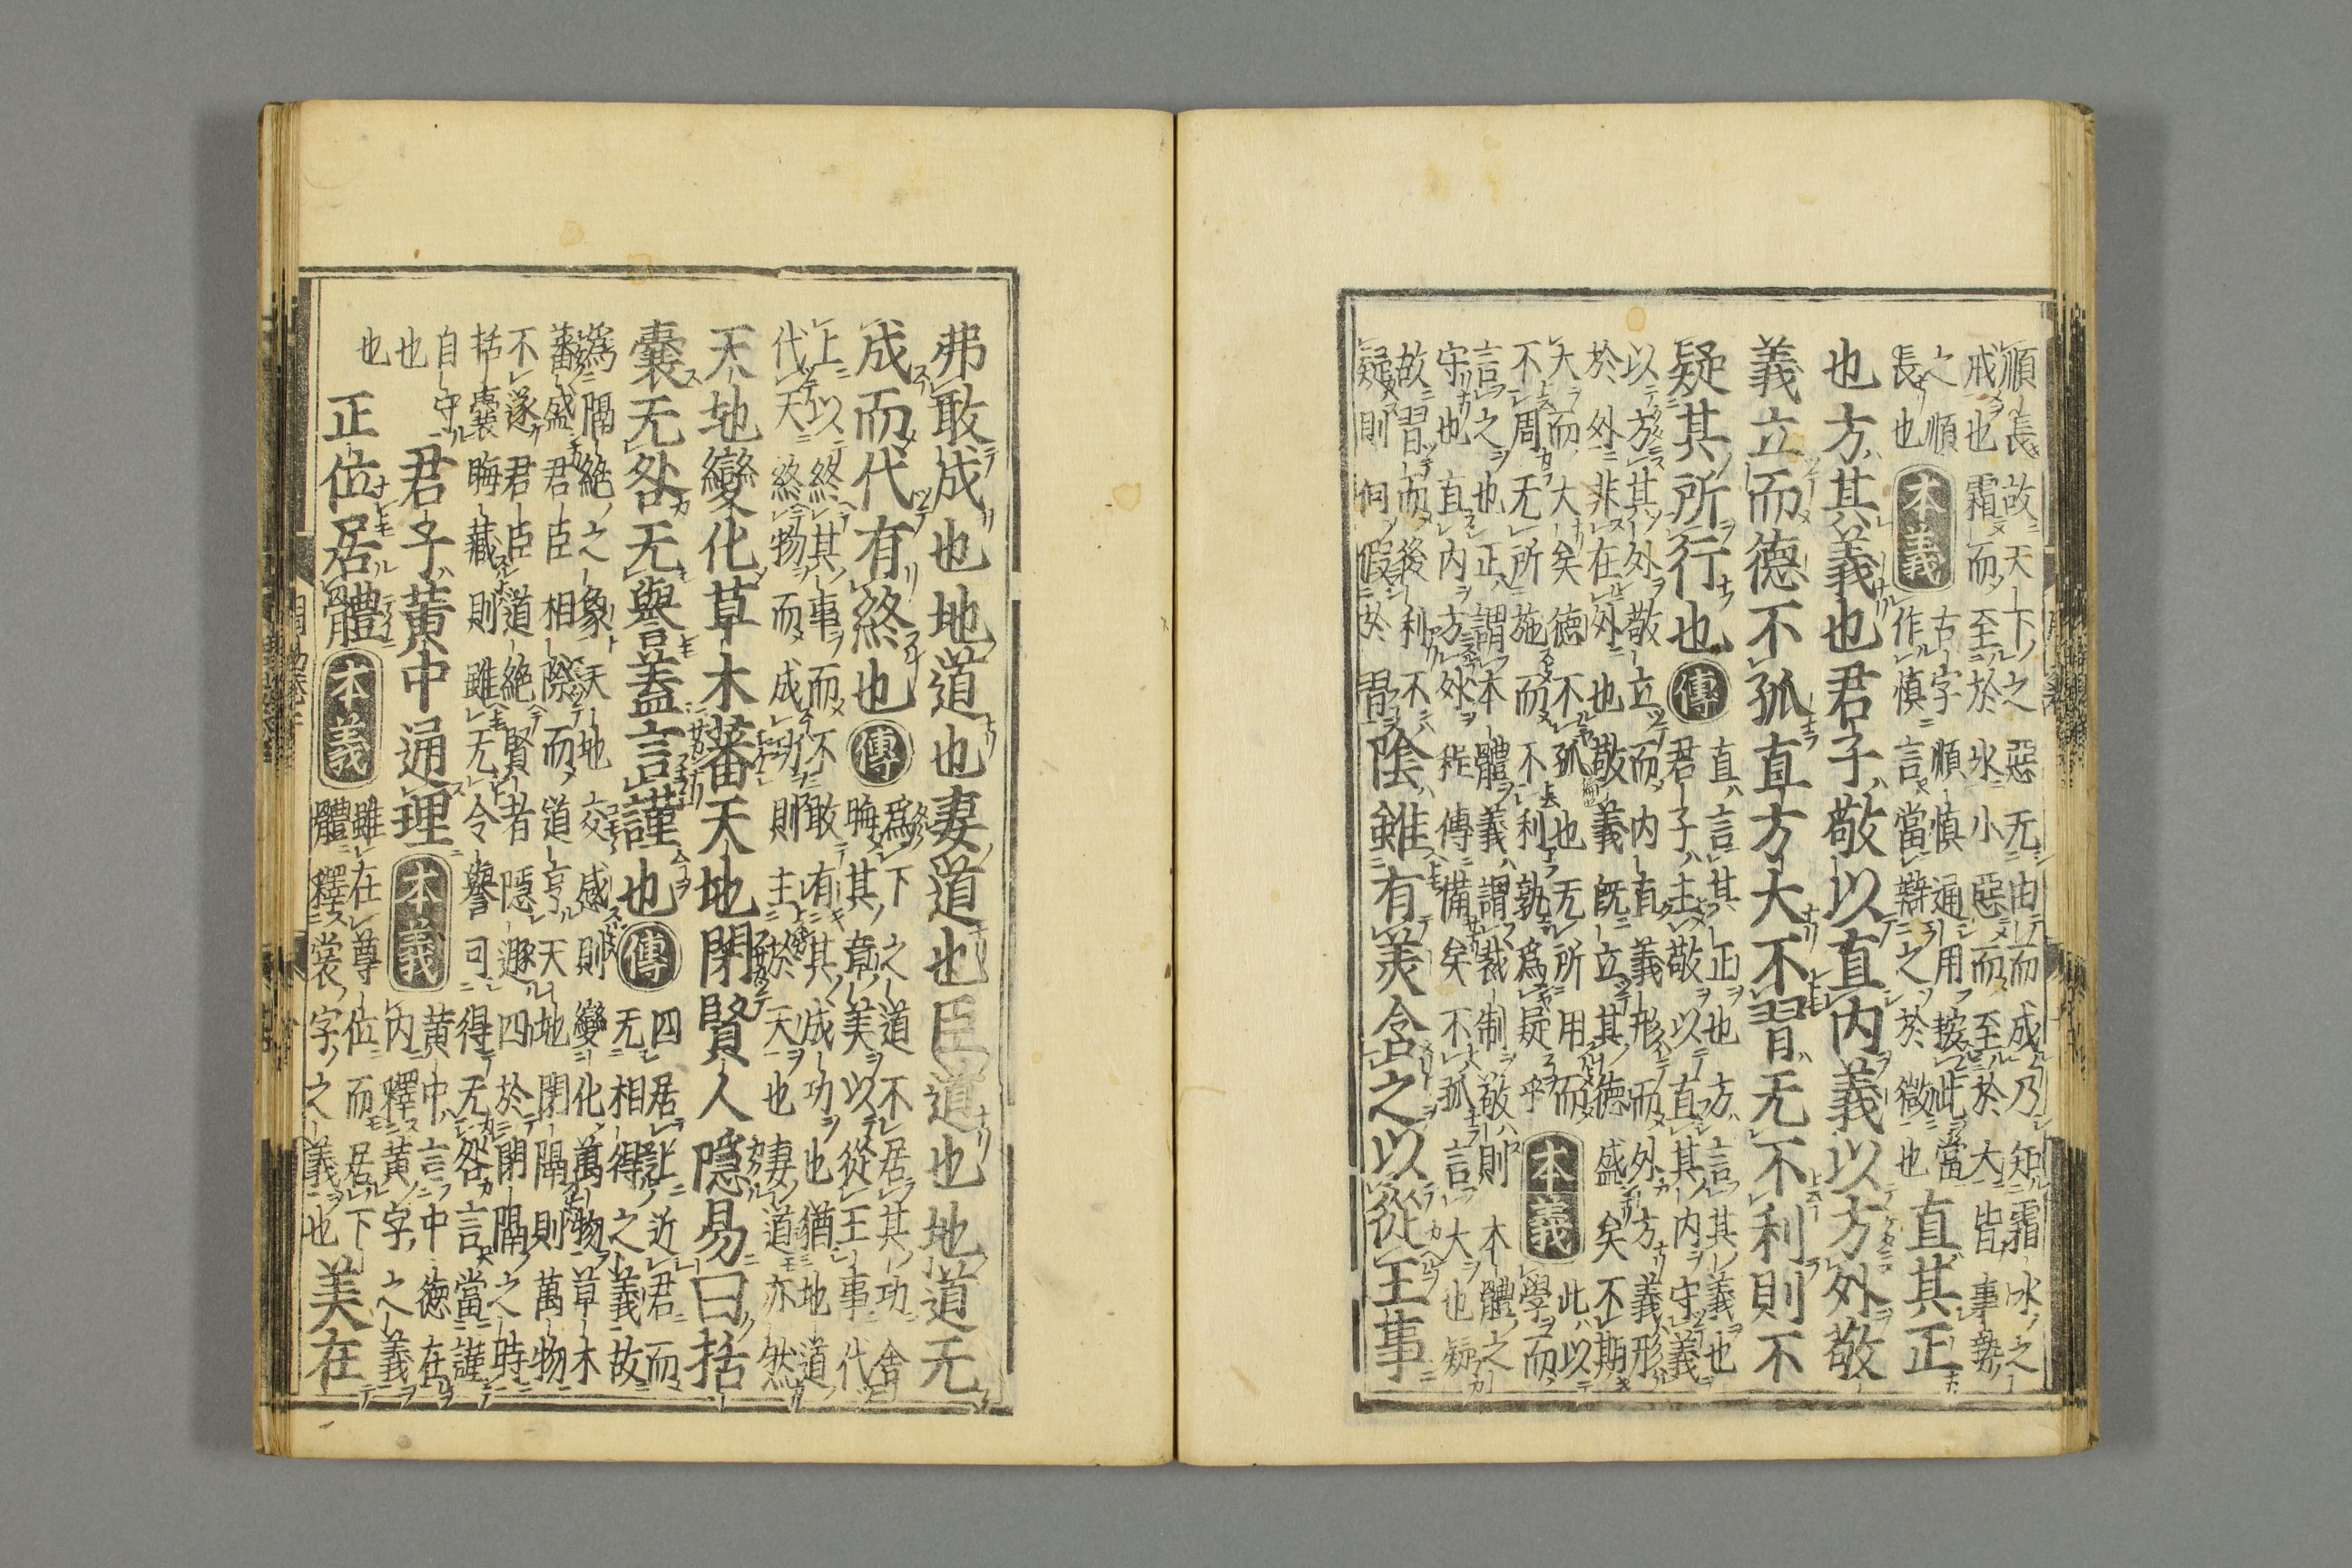 順長故天下之惡无由而成乃知霜冰之
戒也霜而至於氷小惡而至於大皆事勢
之順
長也
本義
古字順慎通用按此當
作慎言當辯之於微也
直其正
也方其義也君子敬以直内義以方外敬
義立而德不孤直方大不習无不利則不
疑其所行也
傳
直言其正也方言其義也
君子主敬以直其内守義
以方其外敬立而内直義形而外方義形
於外非在外也敬義既立其德盛矣不期
大而大矣德不孤也无所用而
不周无所施而不利孰爲疑乎
本義
此以
學而
言之也正謂本體義謂裁制敬則本體之
守也直内方外程傳備矣不孤言大也疑
故習而後利不
疑則何假於習
陰雖有美含之以從王事
弗敢成也地道也妻道也臣道也地道无
成而代有終也
傳
爲下之道不居其功含
晦其章美以從王事代
上以終其事而不敢有其成功也猶地道
代天終物而成功則主於天也妻道亦然
天地變化草木蕃天地閉賢人隱易曰括
囊无咎无譽蓋言謹也
傳
四居上近君而
无相得之義故
爲隔絶之象天地交感則變化萬物草木
蕃盛君臣相際而道亨天地閉隔則萬物
不遂君臣道絶賢者隱遯四於閉隔之時
括囊晦藏則雖无令譽可得无咎言當謹
自守
也
君子黄中通理
本義
黄中言中德在
内釋黄字之義
也
正位居體
本義
雖在尊位而居下
體釋裳字之義也
美在